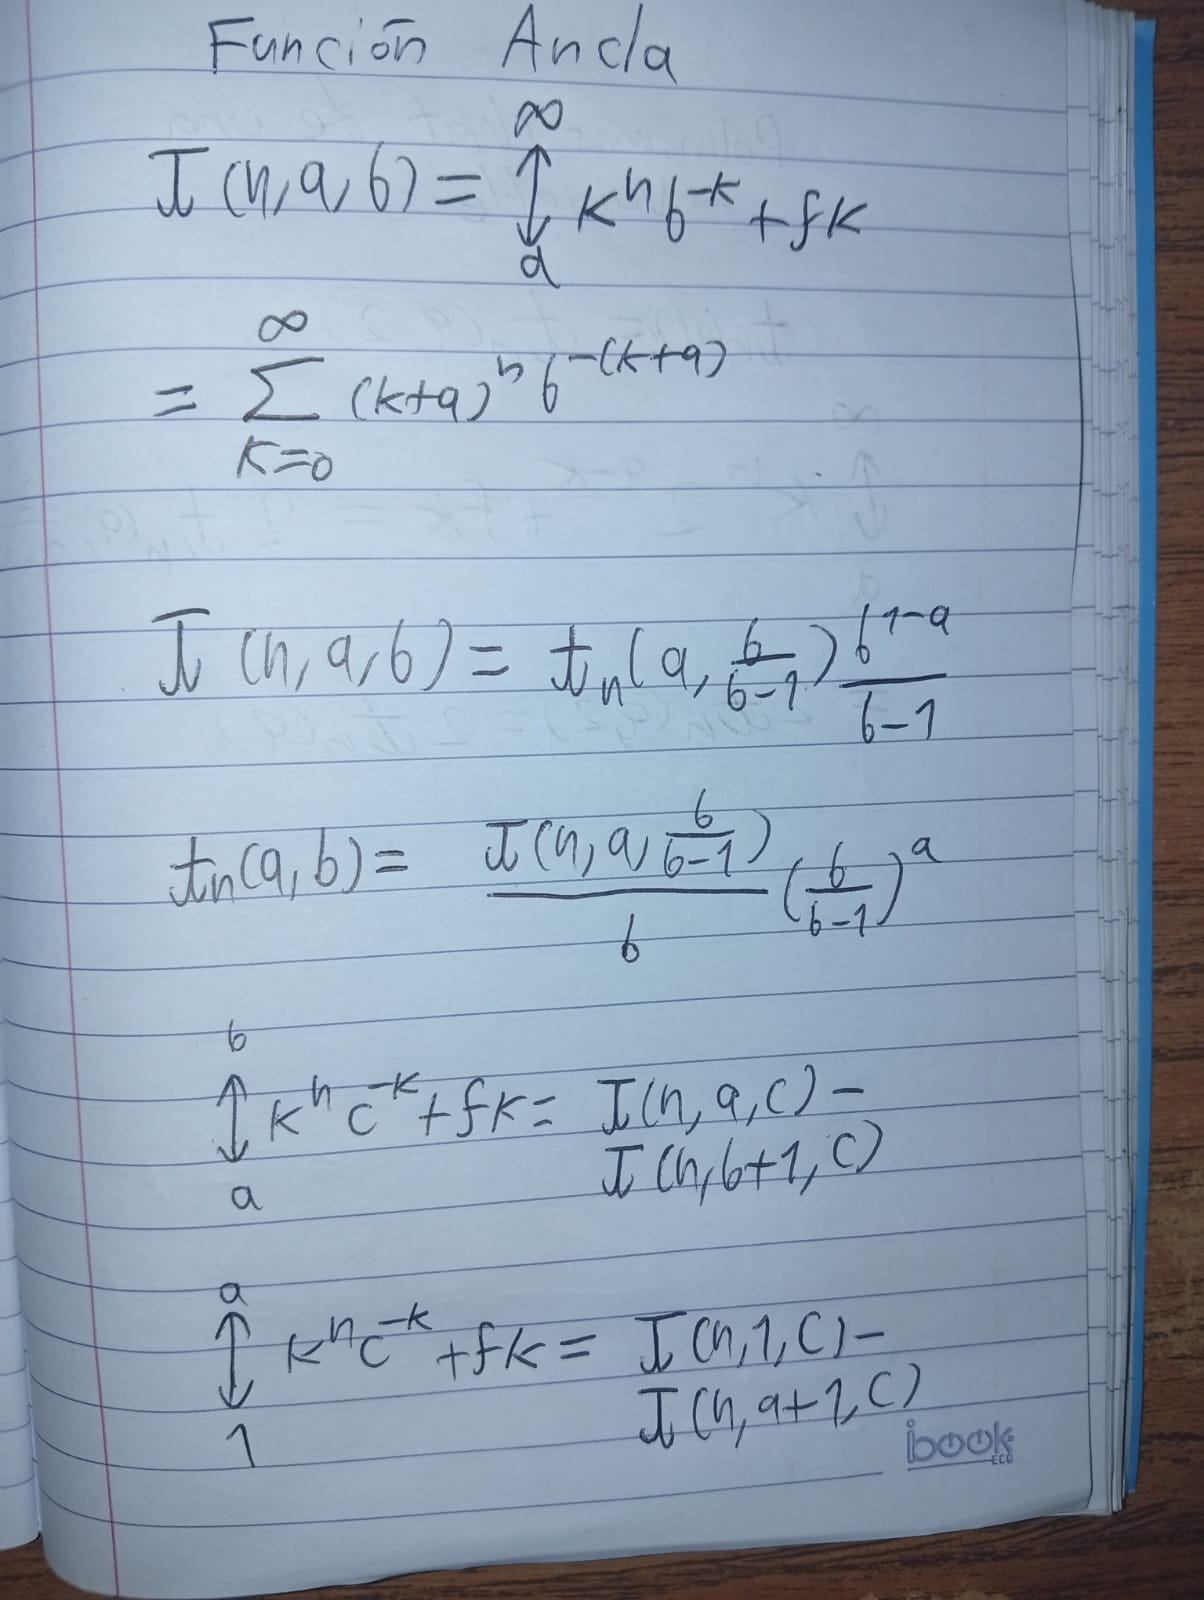 Función Ancla
I(n,a,b) = ∞ ↕ a k^n b^-k + fk
= ∞ Σ k=0 (k+a)^n b^-(k+a)
I(n,a,b) = t_n(a, b/(b-1)) b^(1-a)/(b-1)
t_n(a,b) = I(n,a, b/(b-1))/b (b/(b-1))^a
b ↕ a k^n c^-k + fk = I(n,a,c) -
I(n,b+1,c)
a ↕ 1 k^n c^-k + fk = I(n,1,c) -
I(n,a+1,c)
ibook
ECO